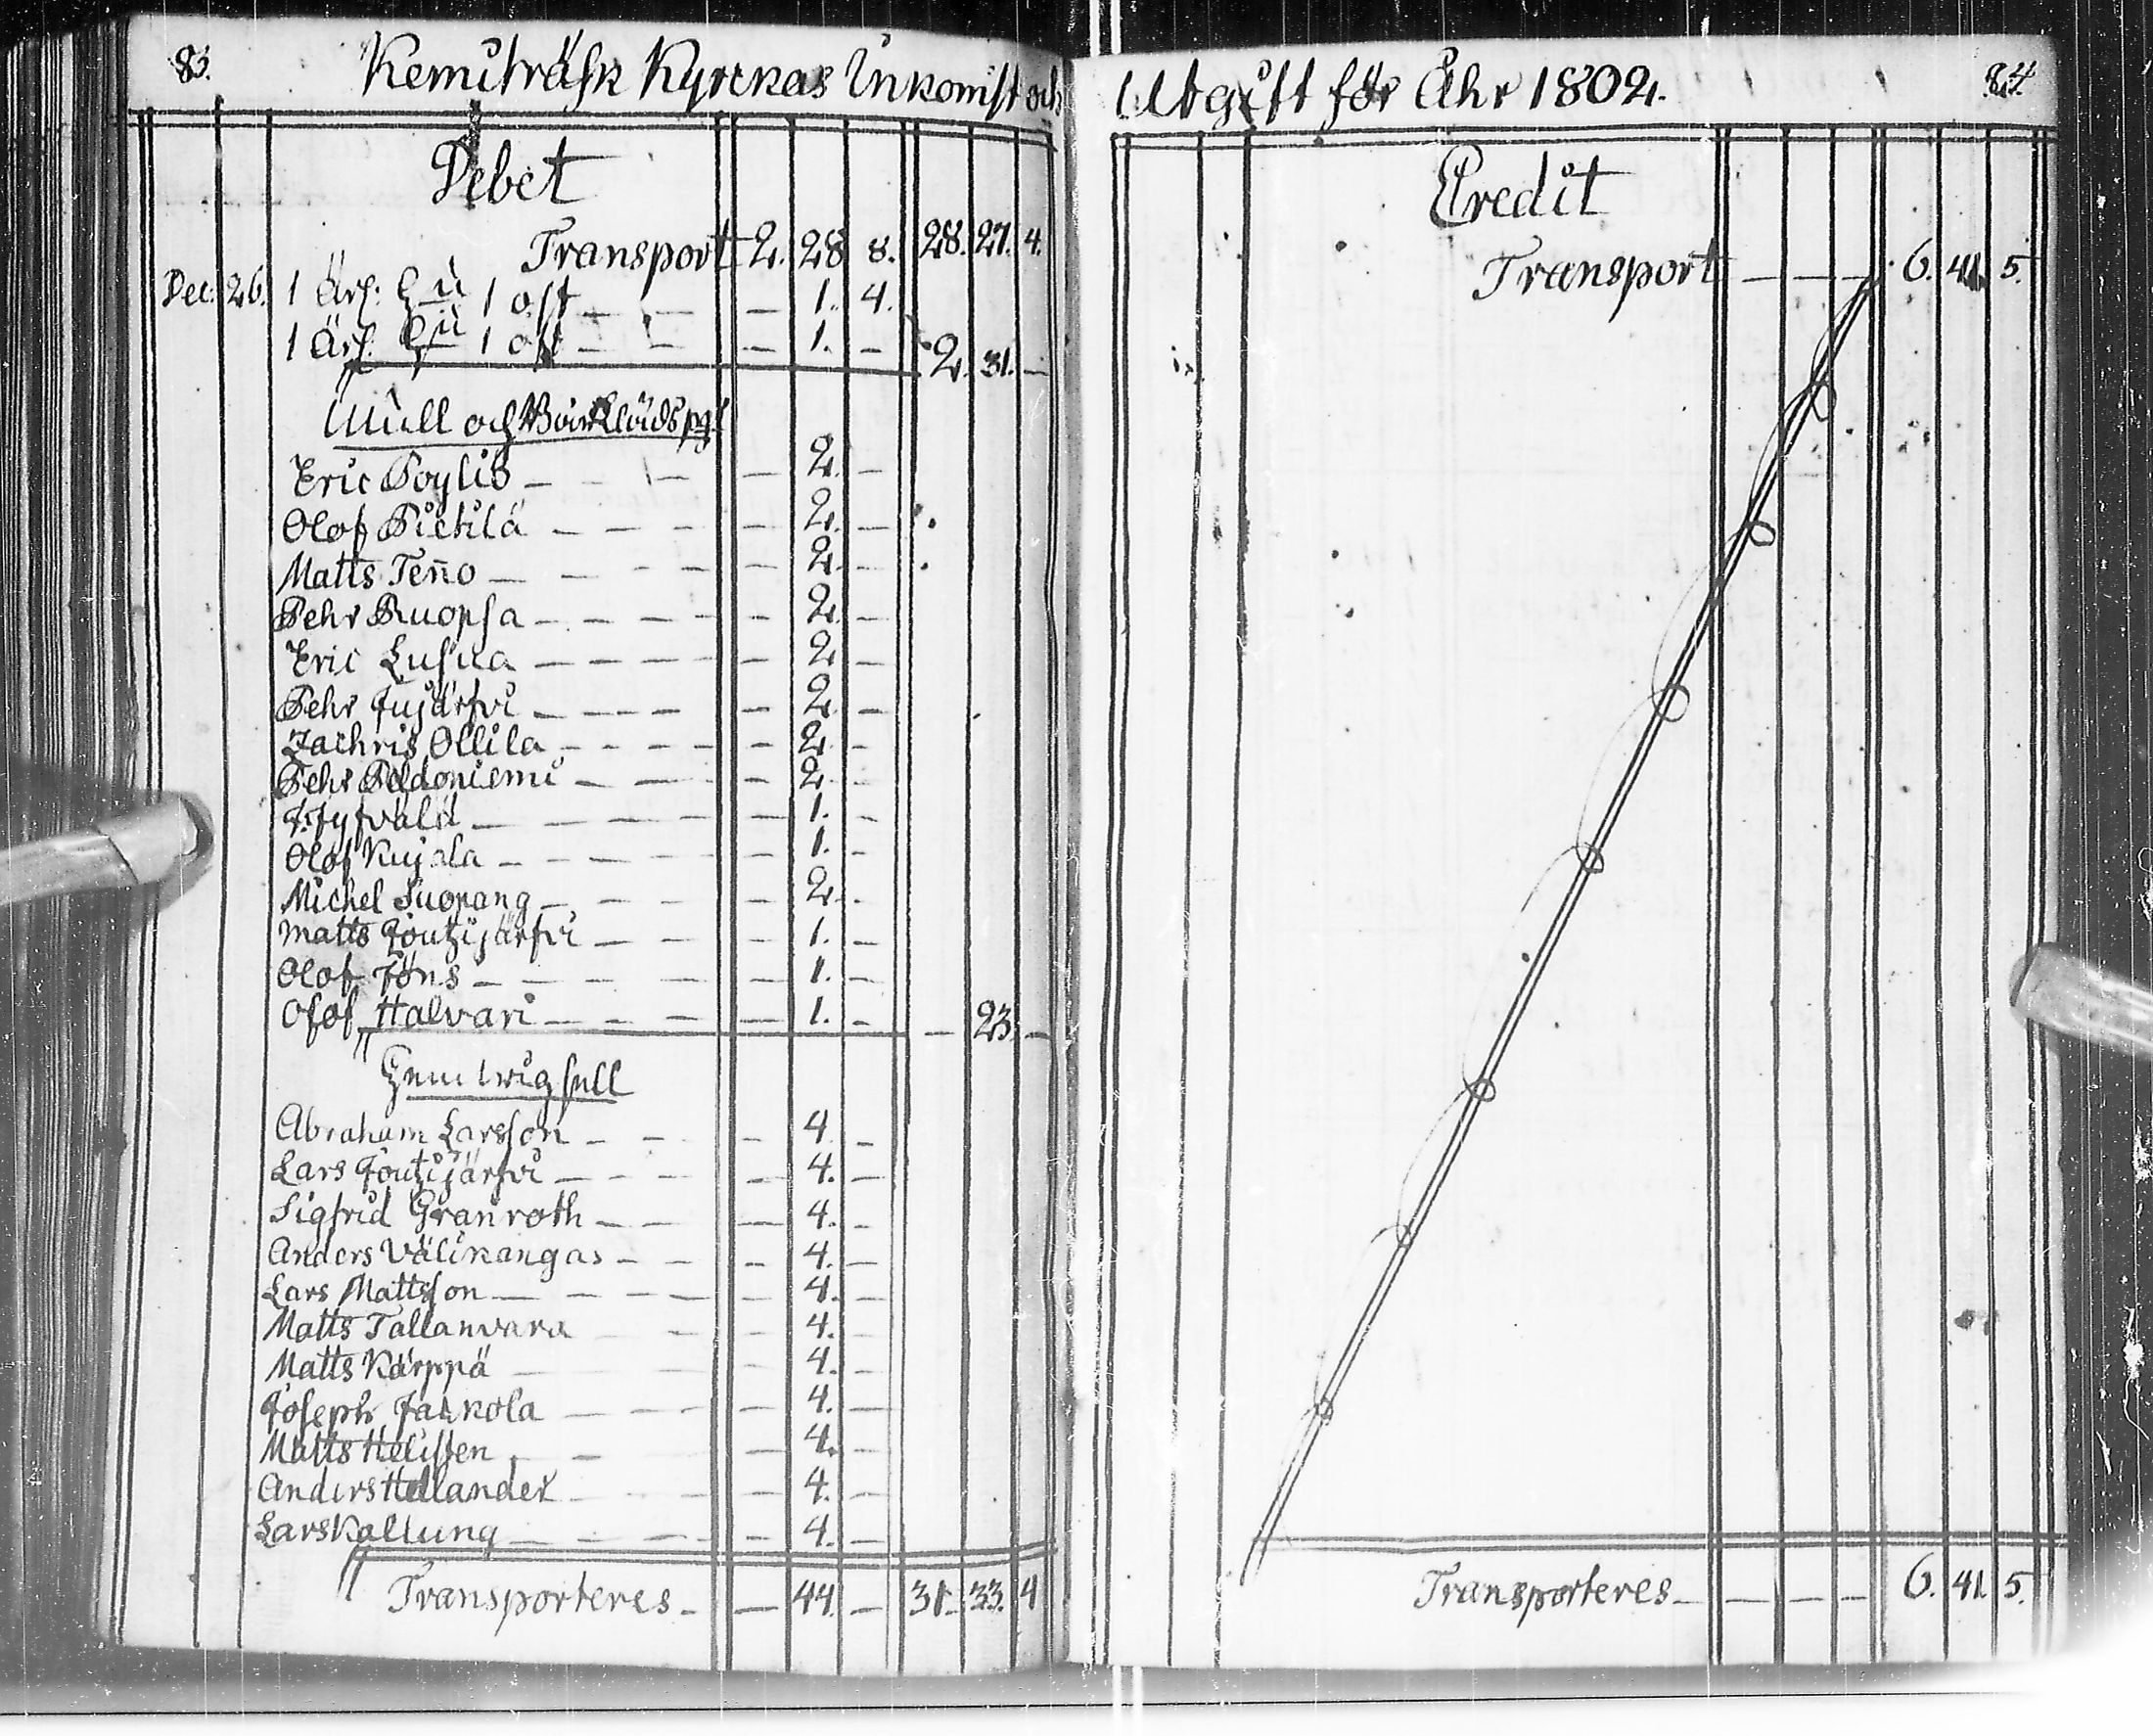 83.
Kemiträsk Kyrckas Inkomst och
Debet
Transport 2. 28 8. 28. 27. 4.
Dec. 26. 1 Ärs. 1 ost — — — 1. 4.
1 Ärs. 1 ost — — — 1. — 2. 31. —
Mull och
Eric Poylio — — — — 2. —
Olof Pietilä — — — — — 2. —
Matts Teño — — — — — — 2. —
Pehr Ruopsa — — — — — 2. —
Eric Lusua — — — — — 2. —
Pehr Jujärfvi — — — — — 2. —
Zachris Ollila — — — — — — 2. —
Pehr Peldoniemi — — — — — 2. —
— — — — — — 1. —
Olof Kujala — — — — — — 1. —
Michel Suopang — — — — — 2. —
Matts Joutzijärfvi — — — — 1. —
Olof Jöns — — — — — — 1. —
Olof Halvari — — — — — 1. — — 23. —
Abraham Larsson — — — — 4 —
Lars Joutzijärfvi — — — — — 4. —
Sigfrid Granroth — — — 4. —
Anders Välikangas — — — — 4. —
Lars Mattsson — — — — — 4. —
Matts Tallanvara — — — 4. —
Matts Kärppä — — — — 4. —
Joseph Jaakola — — — — 4. —
Matts Helisten — — — 4. —
Anders Hellander — — — — 4. —
Lars Kallung — — — — — 4. —
Transporteres — — 44. — 31. 33. 4
Utgift för Åhr 1802.
84
Credit
Transport — — — 6. 41. 5.
Transporteres — — — — 6. 41. 5.